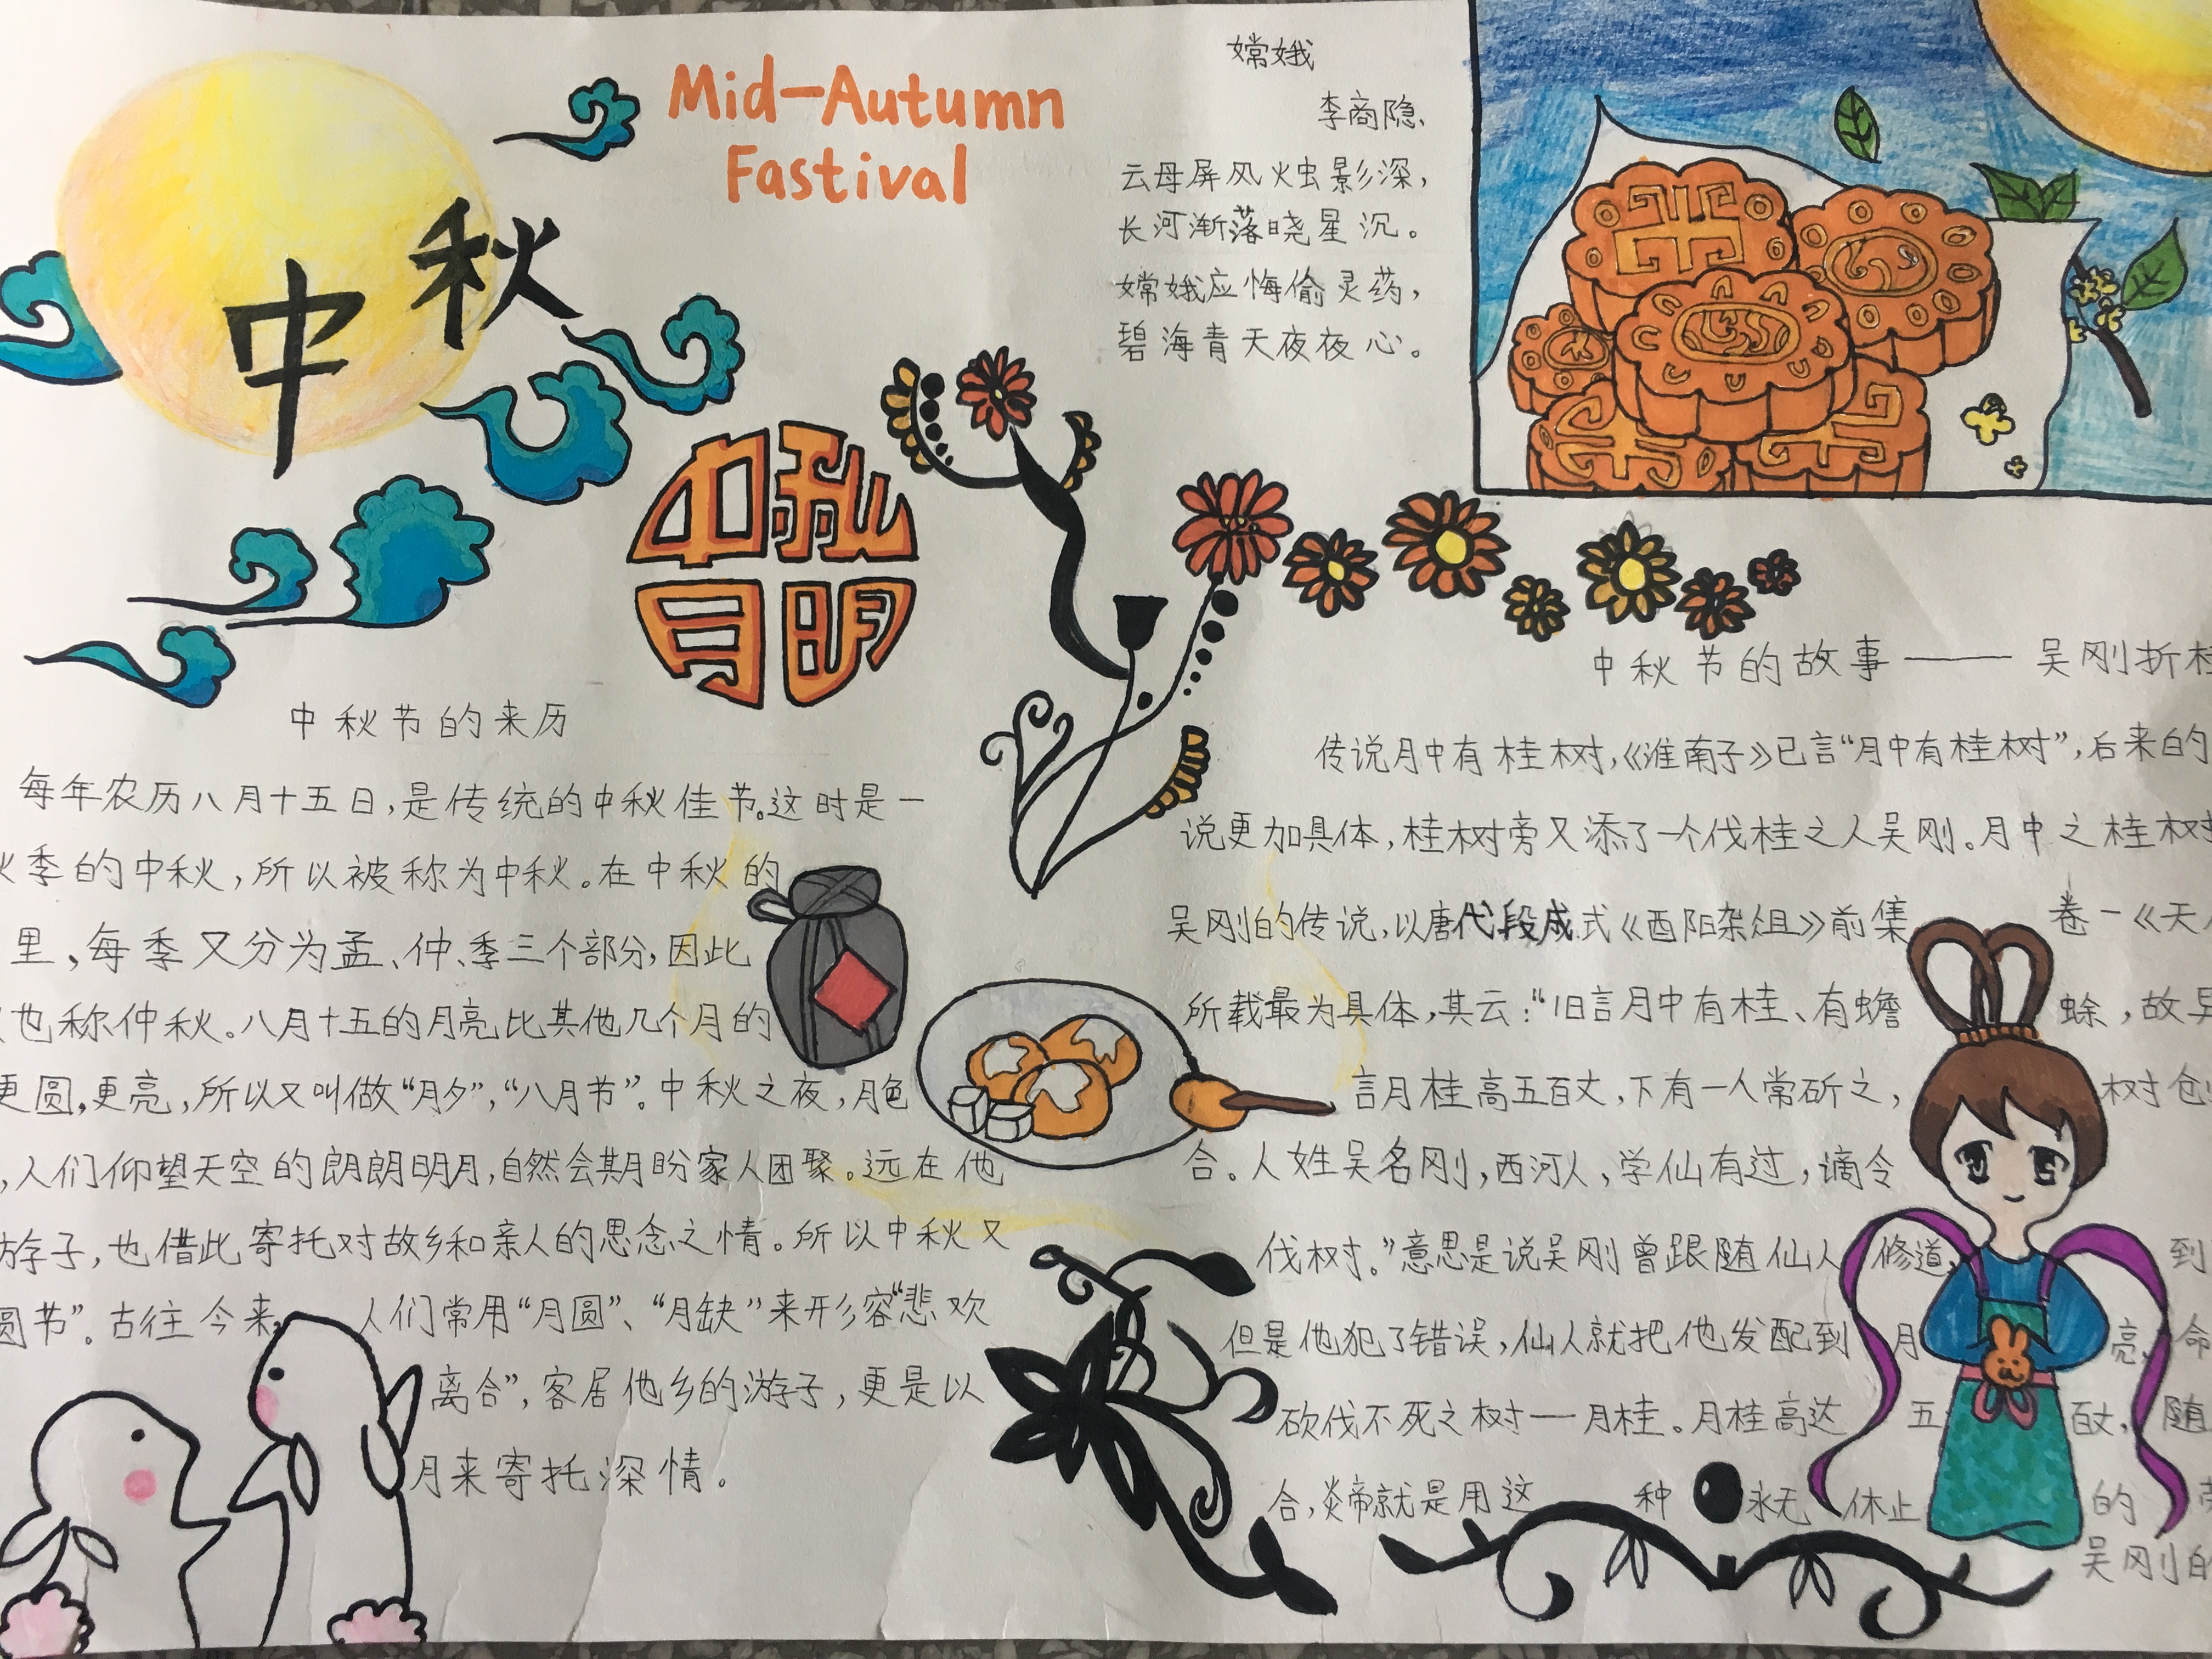 中秋
Mid-Autumn
Fastival
中秋
月明
嫦娥
李商隐
云母屏风烛影深，
长河渐落晓星沉。
嫦娥应悔偷灵药，
碧海青天夜夜心。
中秋节的来历
每年农历八月十五日，是传统的中秋佳节。这时是一
季的中秋，所以被称为中秋。在中秋的
里，每季又分为孟、仲、季三个部分，因此
也称仲秋。八月十五的月亮比其他几个月的
更圆，更亮，所以又叫做“月夕”，“八月节”。中秋之夜，月色
，人们仰望天空的朗朗明月，自然会期盼家人团聚。远在他
游子，也借此寄托对故乡和亲人的思念之情。所以中秋又
圆节”。古往今来，人们常用“月圆”、“月缺”来形容“悲欢
离合”，客居他乡的游子，更是以
月来寄托深情。
中秋节的故事——吴刚折桂
传说月中有桂树，《淮南子》已言“月中有桂树”，后来的
说更加具体，桂树旁又添了一个伐桂之人吴刚。月中之桂树
吴刚的传说，以唐代段成式《酉阳杂俎》前集卷一《天
所载最为具体，其云：“旧言月中有桂、有蟾蜍，故异
言月桂高五百丈，下有一人常斫之，树创
合。人姓吴名刚，西河人，学仙有过，谪令
伐树。”意思是说吴刚曾跟随仙人修道，到
但是他犯了错误，仙人就把他发配到月亮，命
砍伐不死之树——月桂。月桂高达五百丈，随
合，炎帝就是用这种永无休止的
吴刚的